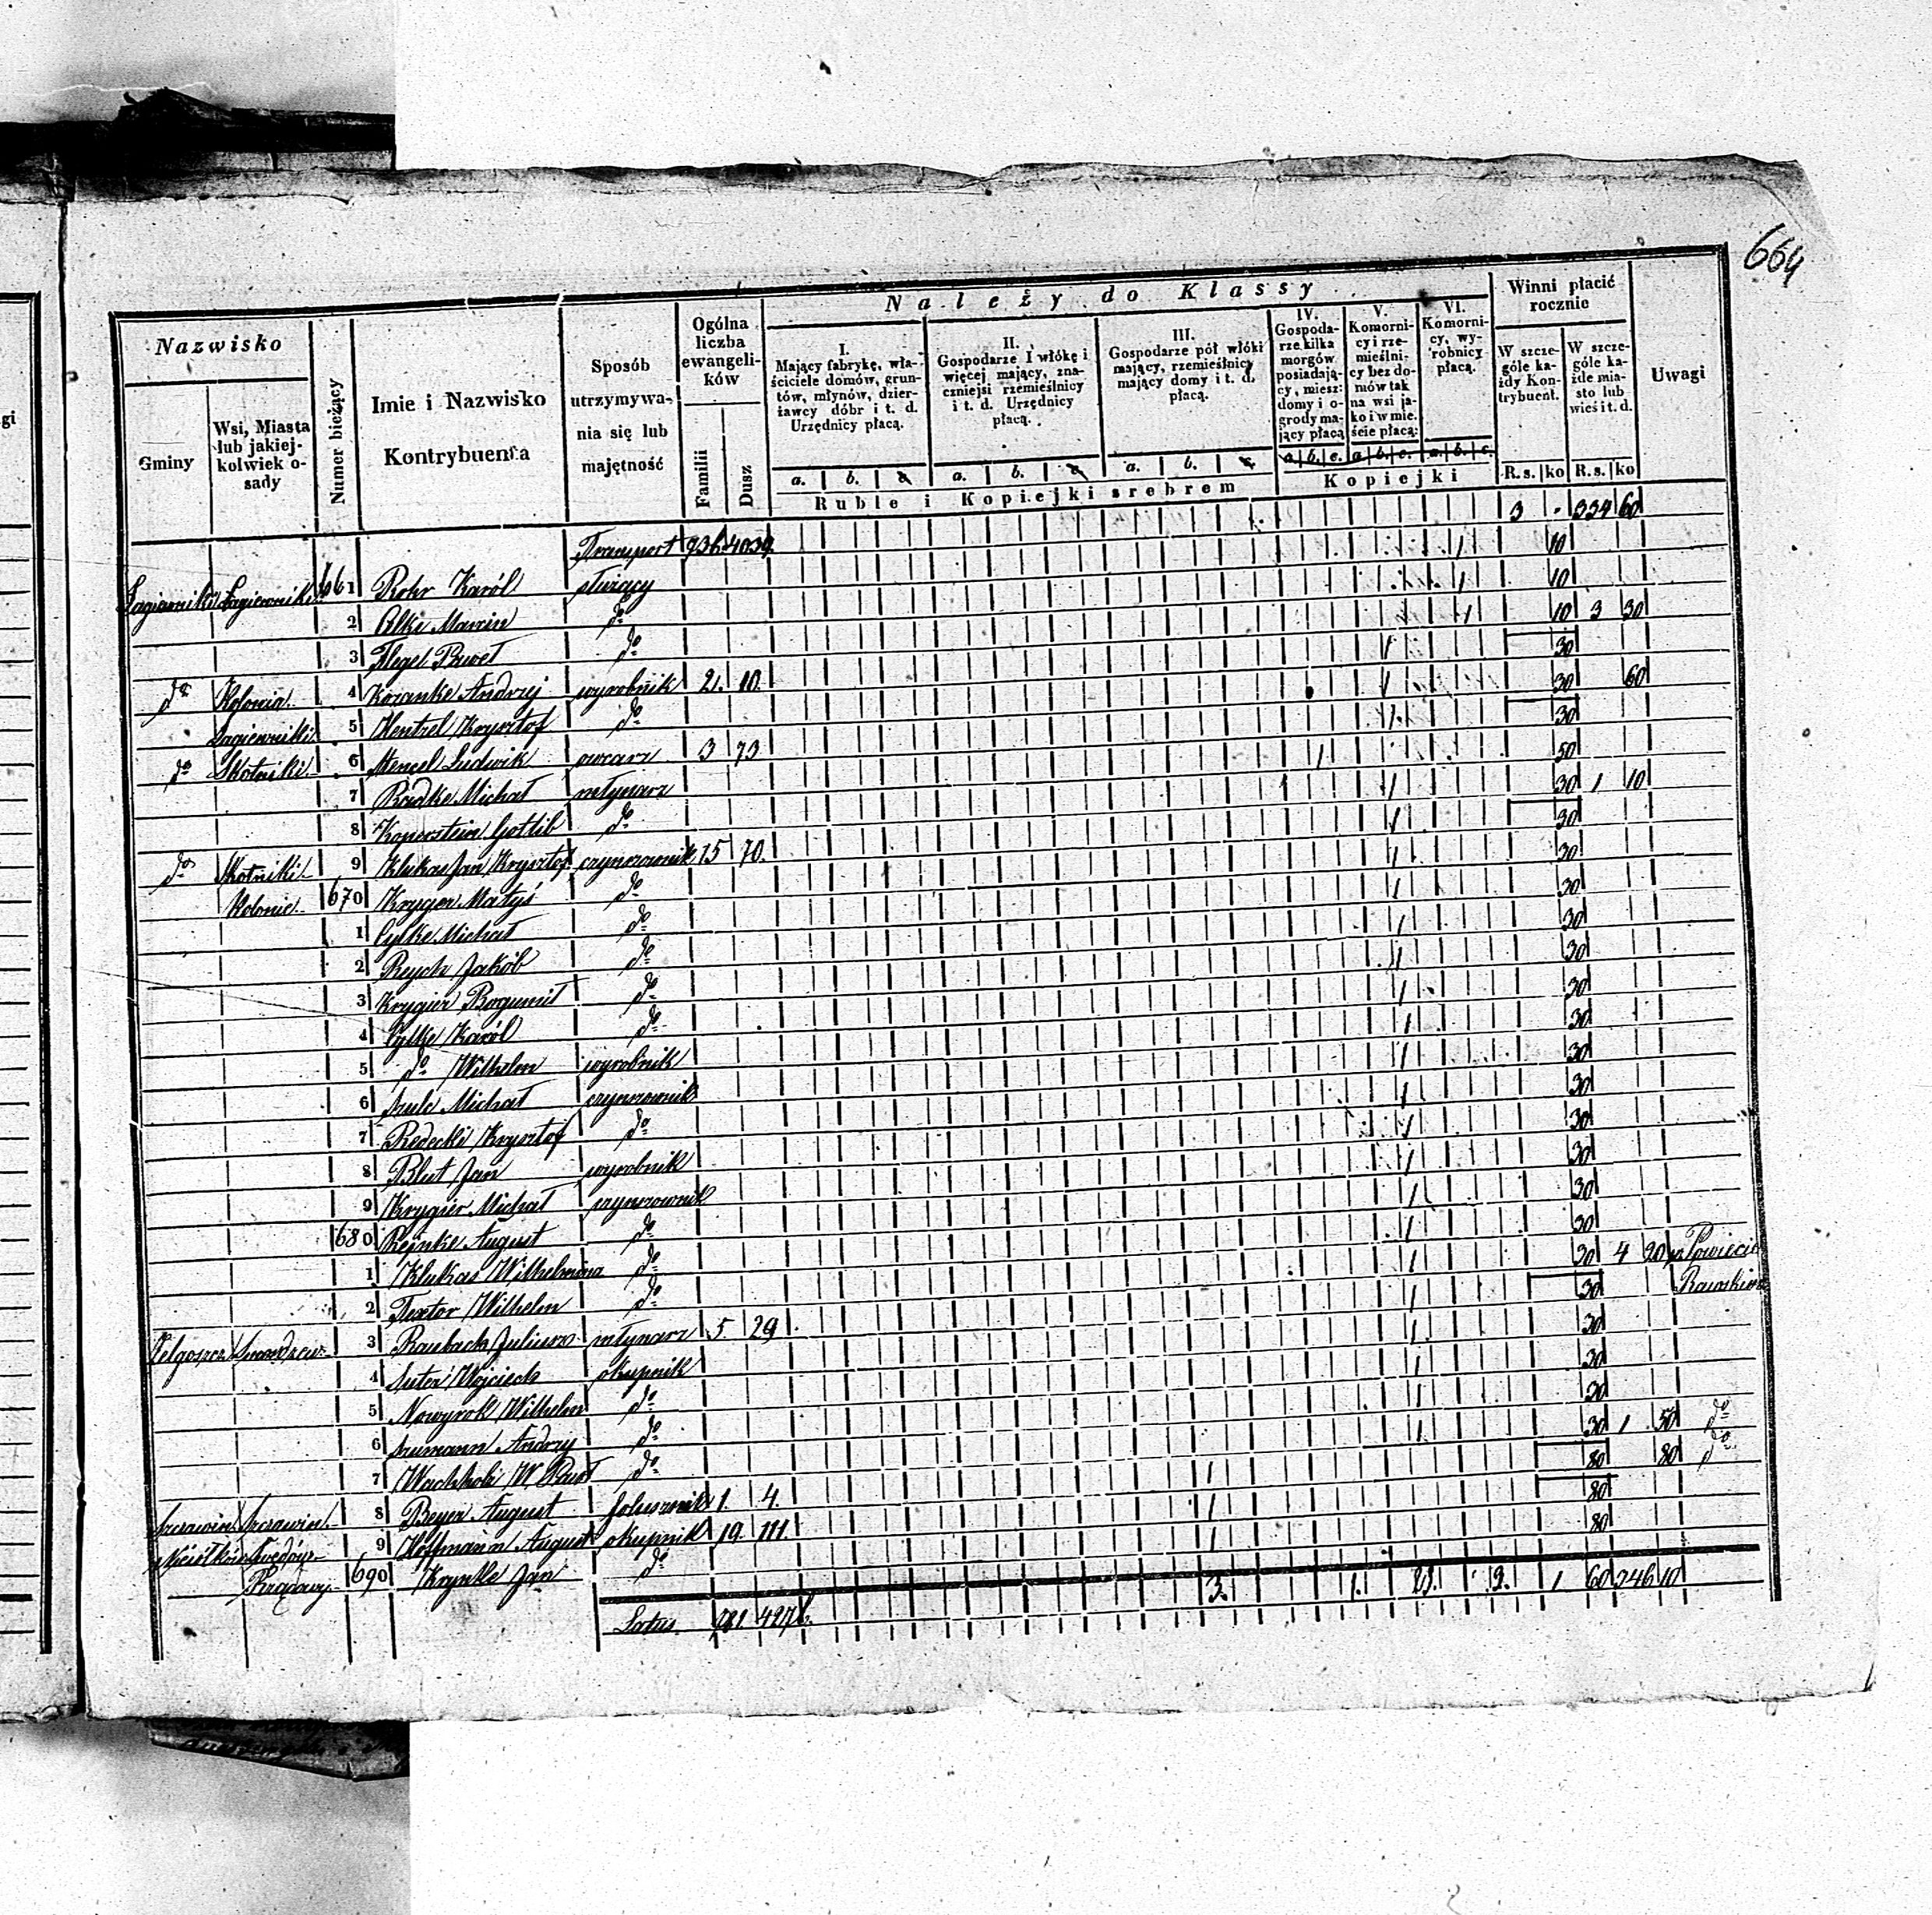 664
gi
Nazwisko
Gminy
Wsi, Miasta lub jakiej-kolwiek o-sady
Numer bieżący
Imie i Nazwisko Kontrybuenta
Sposób utrzymywa-nia się lub majętność
Ogólna liczba ewangeli-ków
Familii Dusz
Należy do Klassy
I. Mający fabrykę, wła-ściciele domów, grun-tów, młynów, dzier-żawcy dóbr i t. d. Urzędnicy płacą.
II. Gospodarze I włókę i więcej mający, zna-czniejsi rzemieślnicy i t. d. Urzędnicy płacą.
III. Gospodarze pół włóki mający, rzemieślnicy mający domy i t. d. płacą.
IV. Gospoda-rze kilka morgów posiadają-cy, miesz: domy i o-grody ma-jący płacą
V. Komorni-cy i rze-mieślni-cy bez do-mów tak na wsi ja-ko i w mie-ście płacą:
VI. Komorni-cy, wy-robnicy płacą.
Winni płacić rocznie
W szcze-góle ka-żdy Kon-trybuent.
W szcze-góle ka-żde mia-sto lub wieś i t. d.
Uwagi
a. b. c. a. b. c. a. b. c. a. b. c. a. b. c. a. b. c.
Ruble i Kopiejki srebrem
Kopiejki
R.s. ko R.s. ko
Transport 936 4039 3 - 334 60
Łagiewniki Łagiewniki 661 Rohr Karól służący 1 10
2 Marcin do 1 10
3 Flegel Paweł do 1 10 3 30
do Kolonia 4 Kozanke Andrzej wyrobnik 2 10 1 30
Łagiewniki 5 Hentzel Krysztof do 1 30 60
do Skotniki 6 Mencel Ludwik owcarz 3 73 1 30
7 Radke Michał młynarz 1 50
8 Koperstein Gotlib do 1 30 1 10
do Skotniki 9 Klukas Jan Krysztof czynszownik 15 70 1 30
Kolonie 670 Kryger Matyś do 1 30
1 Cylke Michał do 1 30
2 Reych Jakób do 1 30
3 Krygier Bogumił do 1 30
4 Cylke Karól do 1 30
5 do Wilhelm wyrobnik 1 30
6 Szulc Michał czynszownik 1 30
7 Redecki Krysztof do 1 30
8 Blut Jan wyrobnik 1 30
9 Krygier Michał czynszownik 1 30
680 Rejnke August do 1 30
1 Klukas Wilhelmina do 1 30
2 Textor Wilhelm do 1 30 4 20 w Powiecie
Rawskim
3 Raubach Juliusz młynarz 5 29 1 30
4 Wojciech okupnik 1 30
5 Nowyrok Wilhelm do 1 30
6 Szumann Andrzej do 1 30
7 W. Paweł do 1 30 1 50 do
Szczawin Szczawin 8 Beyer August folusznik 1 4 1 80 80 do
9 Hoffmann August okupnik 19 111 1 80
Rządowy 690 Krynke Jan do 1 80
Latus 981 4276 3 1 23 3 1 60 346 10